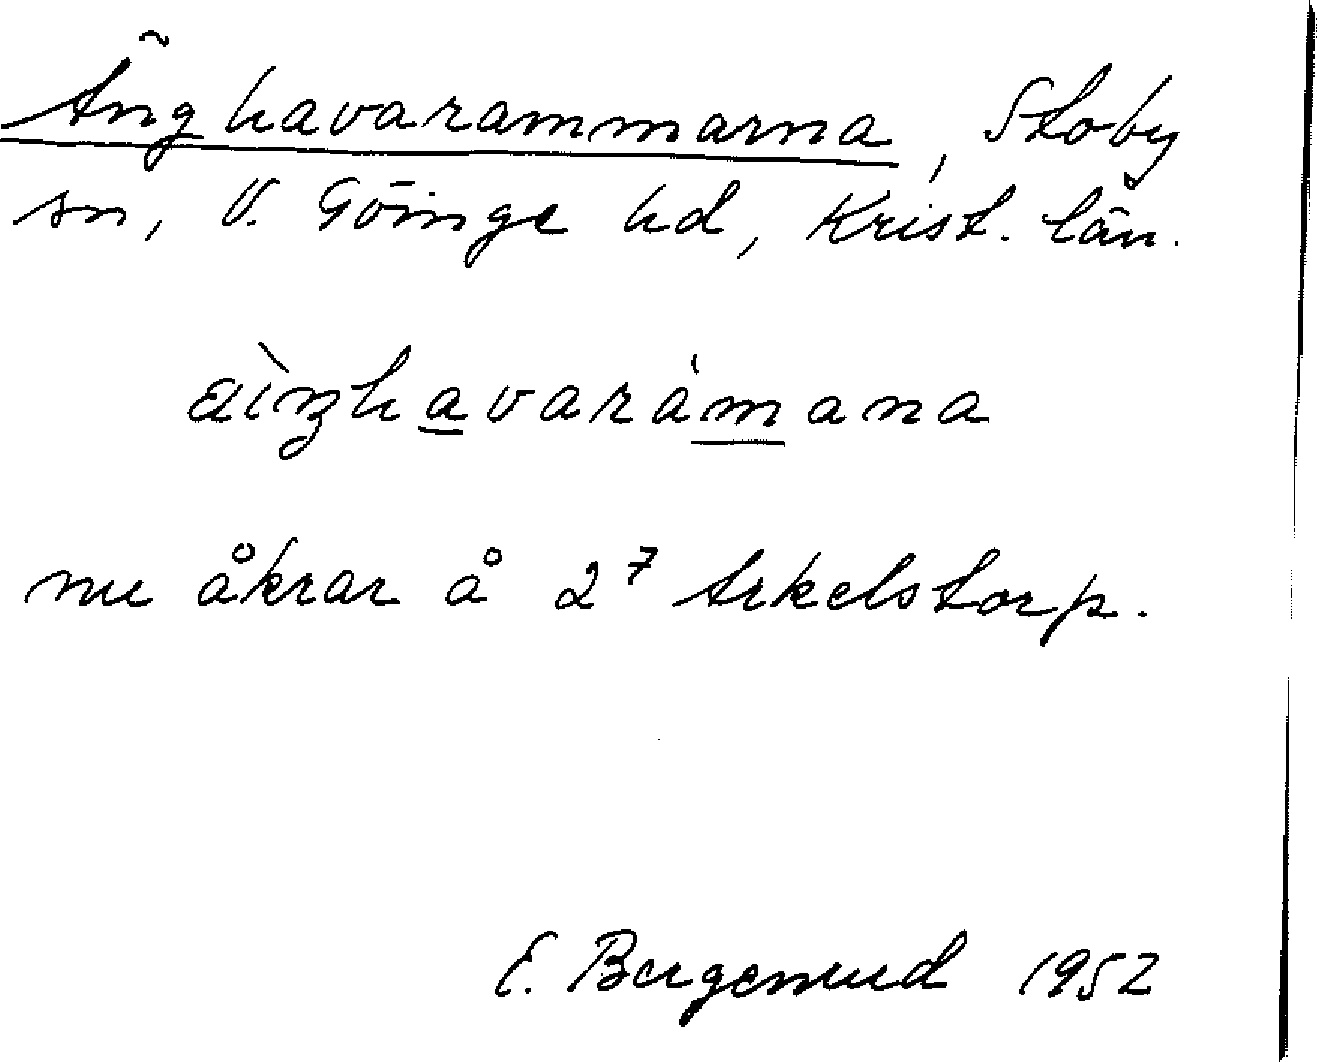 Änghavarammarna, Stoby
sn, V. Göinge hd, Krist. län.
aìŋhavarámana
nu åkrar å 2⁷ Arkelstorp.
E. Bergenud 1952